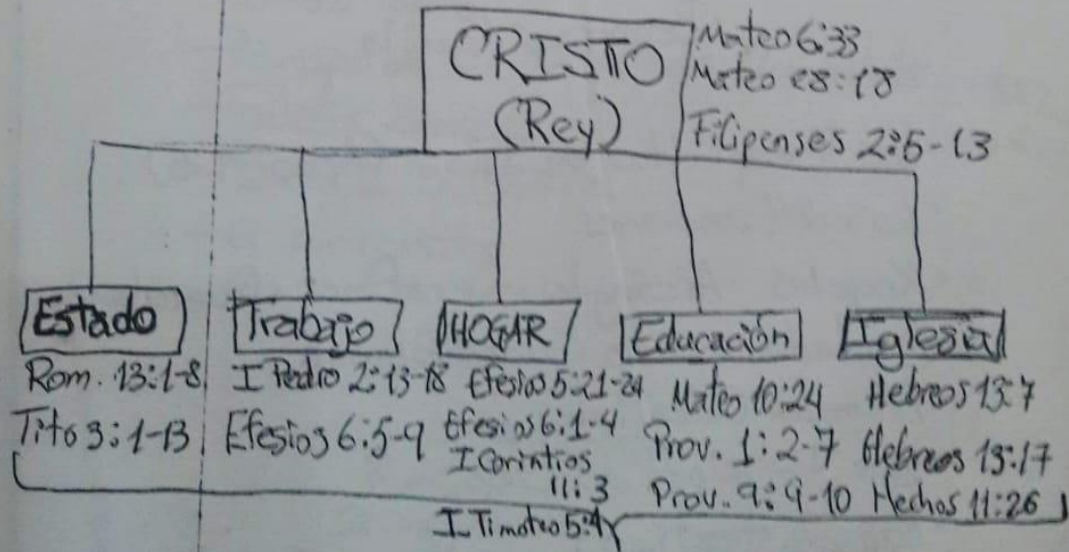 CRISTO
(Rey)
Mateo 6:33
Mateo 28:18
Filipenses 2:5-13
Estado
Rom. 13:1-8
Tito 3:1-13
Trabajo
I Pedro 2:13-18
Efesios 6:5-9
HOGAR
Efesios 5:21-24
Efesios 6:1-4
I Corintios
11:3
I Timoteo 5:4
Educación
Mateo 10:24
Prov. 1:2-7
Prov. 9:9-10
Iglesia
Hebreos 13:7
Hebreos 13:17
Hechos 11:26